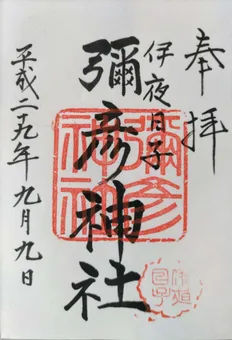 奉拝
伊夜日子
彌彦神社
平成二十九年九月九日
彌彦神社